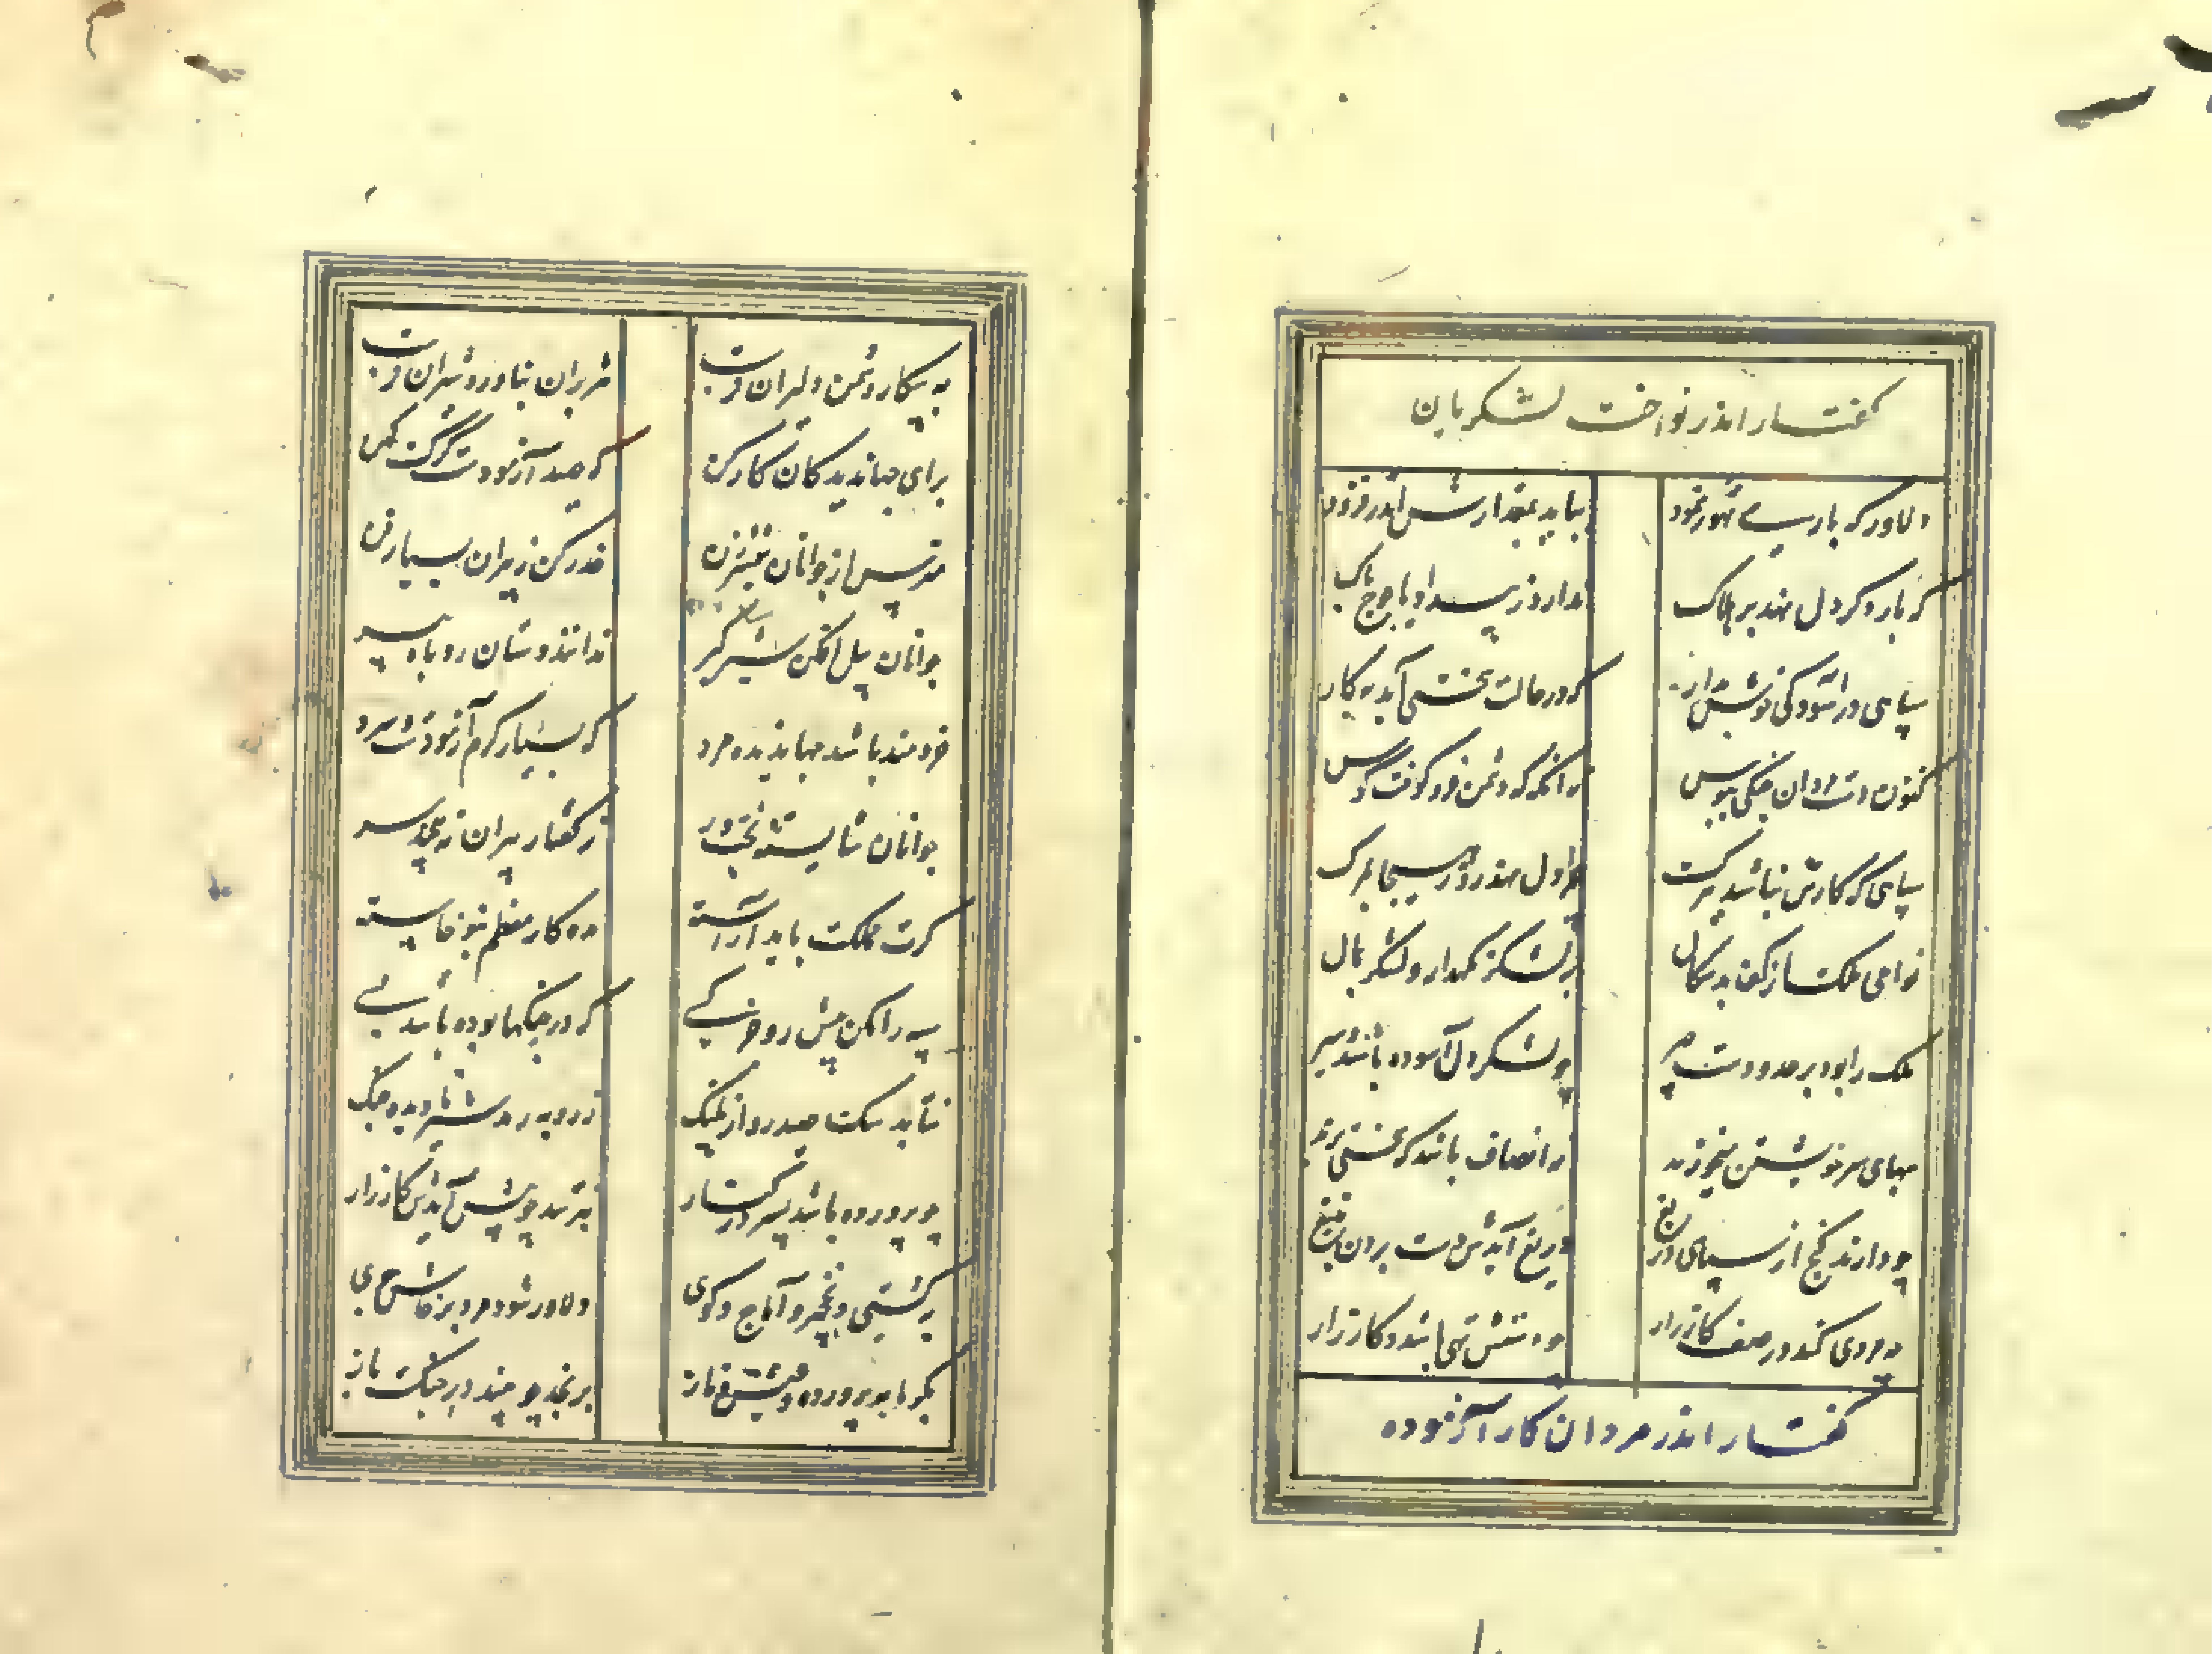 گفتار اندر نواخت لشکریان
دلاور که باری تهور نمود بباید بمقدارش اندر فزود
که بار دگر دل نهد بر هلاک ندارد ز پیکار یاجوج باک
سپاهی در آسودگی خوش بدار که در حالت سختی آید بکار
کنون دست مردان جنگی ببوس نه آنگه که دشمن فرو کوفت کوس
سپاهی که کارش نباشد ببرگ چرا دل نهد روز هیجا بمرگ
نواحی ملک از کف بدسگال بلشکر نگهدار و لشکر بمال
ملک را بود بر عدو دست چیر چو لشکر دل آسوده باشند و سیر
بهای سر خویشتن میخورند نه انصاف باشد که سختی برند
چو دارند گنج از سپاهی دریغ دریغ آیدش دست بردن به تیغ
چه مردی کند در صف کارزار چو دستش تهی باشد و کار زار
گفتار اندر مردان کار آزموده
به پیکار دشمن دلیران فرست هژبران بناورد شیران فرست
برای جهاندیدگان کار کن که صید آزمودست گرگ کهن
مترس از جوانان شمشیرزن حذر کن ز پیران بسیار فن
جوانان پیل افکن شیر گیر ندانند دستان روباه پیر
خردمند باشد جهاندیده مرد که بسیار گرم آزمودست و سرد
جوانان شایسته بختور ز گفتار پیران نه پیچند سر
گرت مملکت باید آراسته مده کار معظم بنوخاسته
سپه را مکن پیش رو جز کسی که در جنگها بوده باشد بسی
نتابد سگ صید رو از پلنگ ز روبه رمد شیر نادیده جنگ
چو پرورده باشد پسر در شکار نترسد چو پیش آیدش کارزار
بکشتی و نخچیر و آماج و گوی دلاور شود مرد پرخاش جوی
بگرمابه پرورده و عیش و ناز برنجد چو بیند در جنگ باز